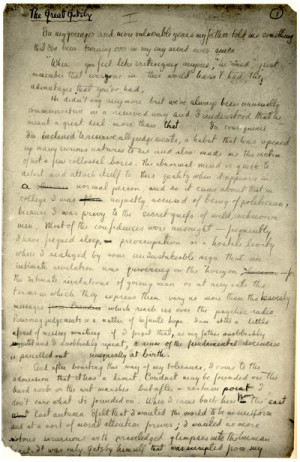 The Great Gatsby
1
In my younger and more vulnerable years my father told me something
that I've been turning over in my mind ever since
"When you feel like criticizing anyone," he said "just
remember that everyone in this world hasn't had the
advantages that you've had,
He didn't say any more but we've always been unusually
communicative in a reserved way and I understood that he
meant a great deal more than that. In consequence
I'm inclined to reserve all judgements, a habit that has opened
up many curious natures to me and also made me the victim
of not a few collossal bores. The abnormal mind is quick to
detect and attach itself to this quality when it appears in
a normal person, and so it came about that in
college I was unjustly accused of being a politician,
because I was privy to the secret griefs of wild, unknown
men. Most of the confidences were unsought — frequently
I have feigned sleep, preoccupation or a hostile levity
when I realized by some unmistakable sign that an
intimate revelation was quivering on the horizon — for
the intimate revelations of young men or at any rate the
terms in which they express them vary no more than the heavenly
messages which reach us over the psychic radio.
Reserving judgements is a matter of hope. I am still a little
afraid of missing something if I forget that, as my father snobbishly
suggested and I snobbishly repeat, a sense of the fundamental decencies
is parcelled out unequally at birth.
And after boasting this way of my tolerance, I come to the
admission that it has a limit. Conduct may be founded on the
hard rock or the wet marshes but after a certain point I
don't care what its founded on. When I came back here from the east
last autumn I felt that I wanted the world to be in uniform
and at a sort of moral attention forever; I wanted no more
riotous excursions with privileged glimpses into the human
heart. It was only Gatsby himself that was exempted from my